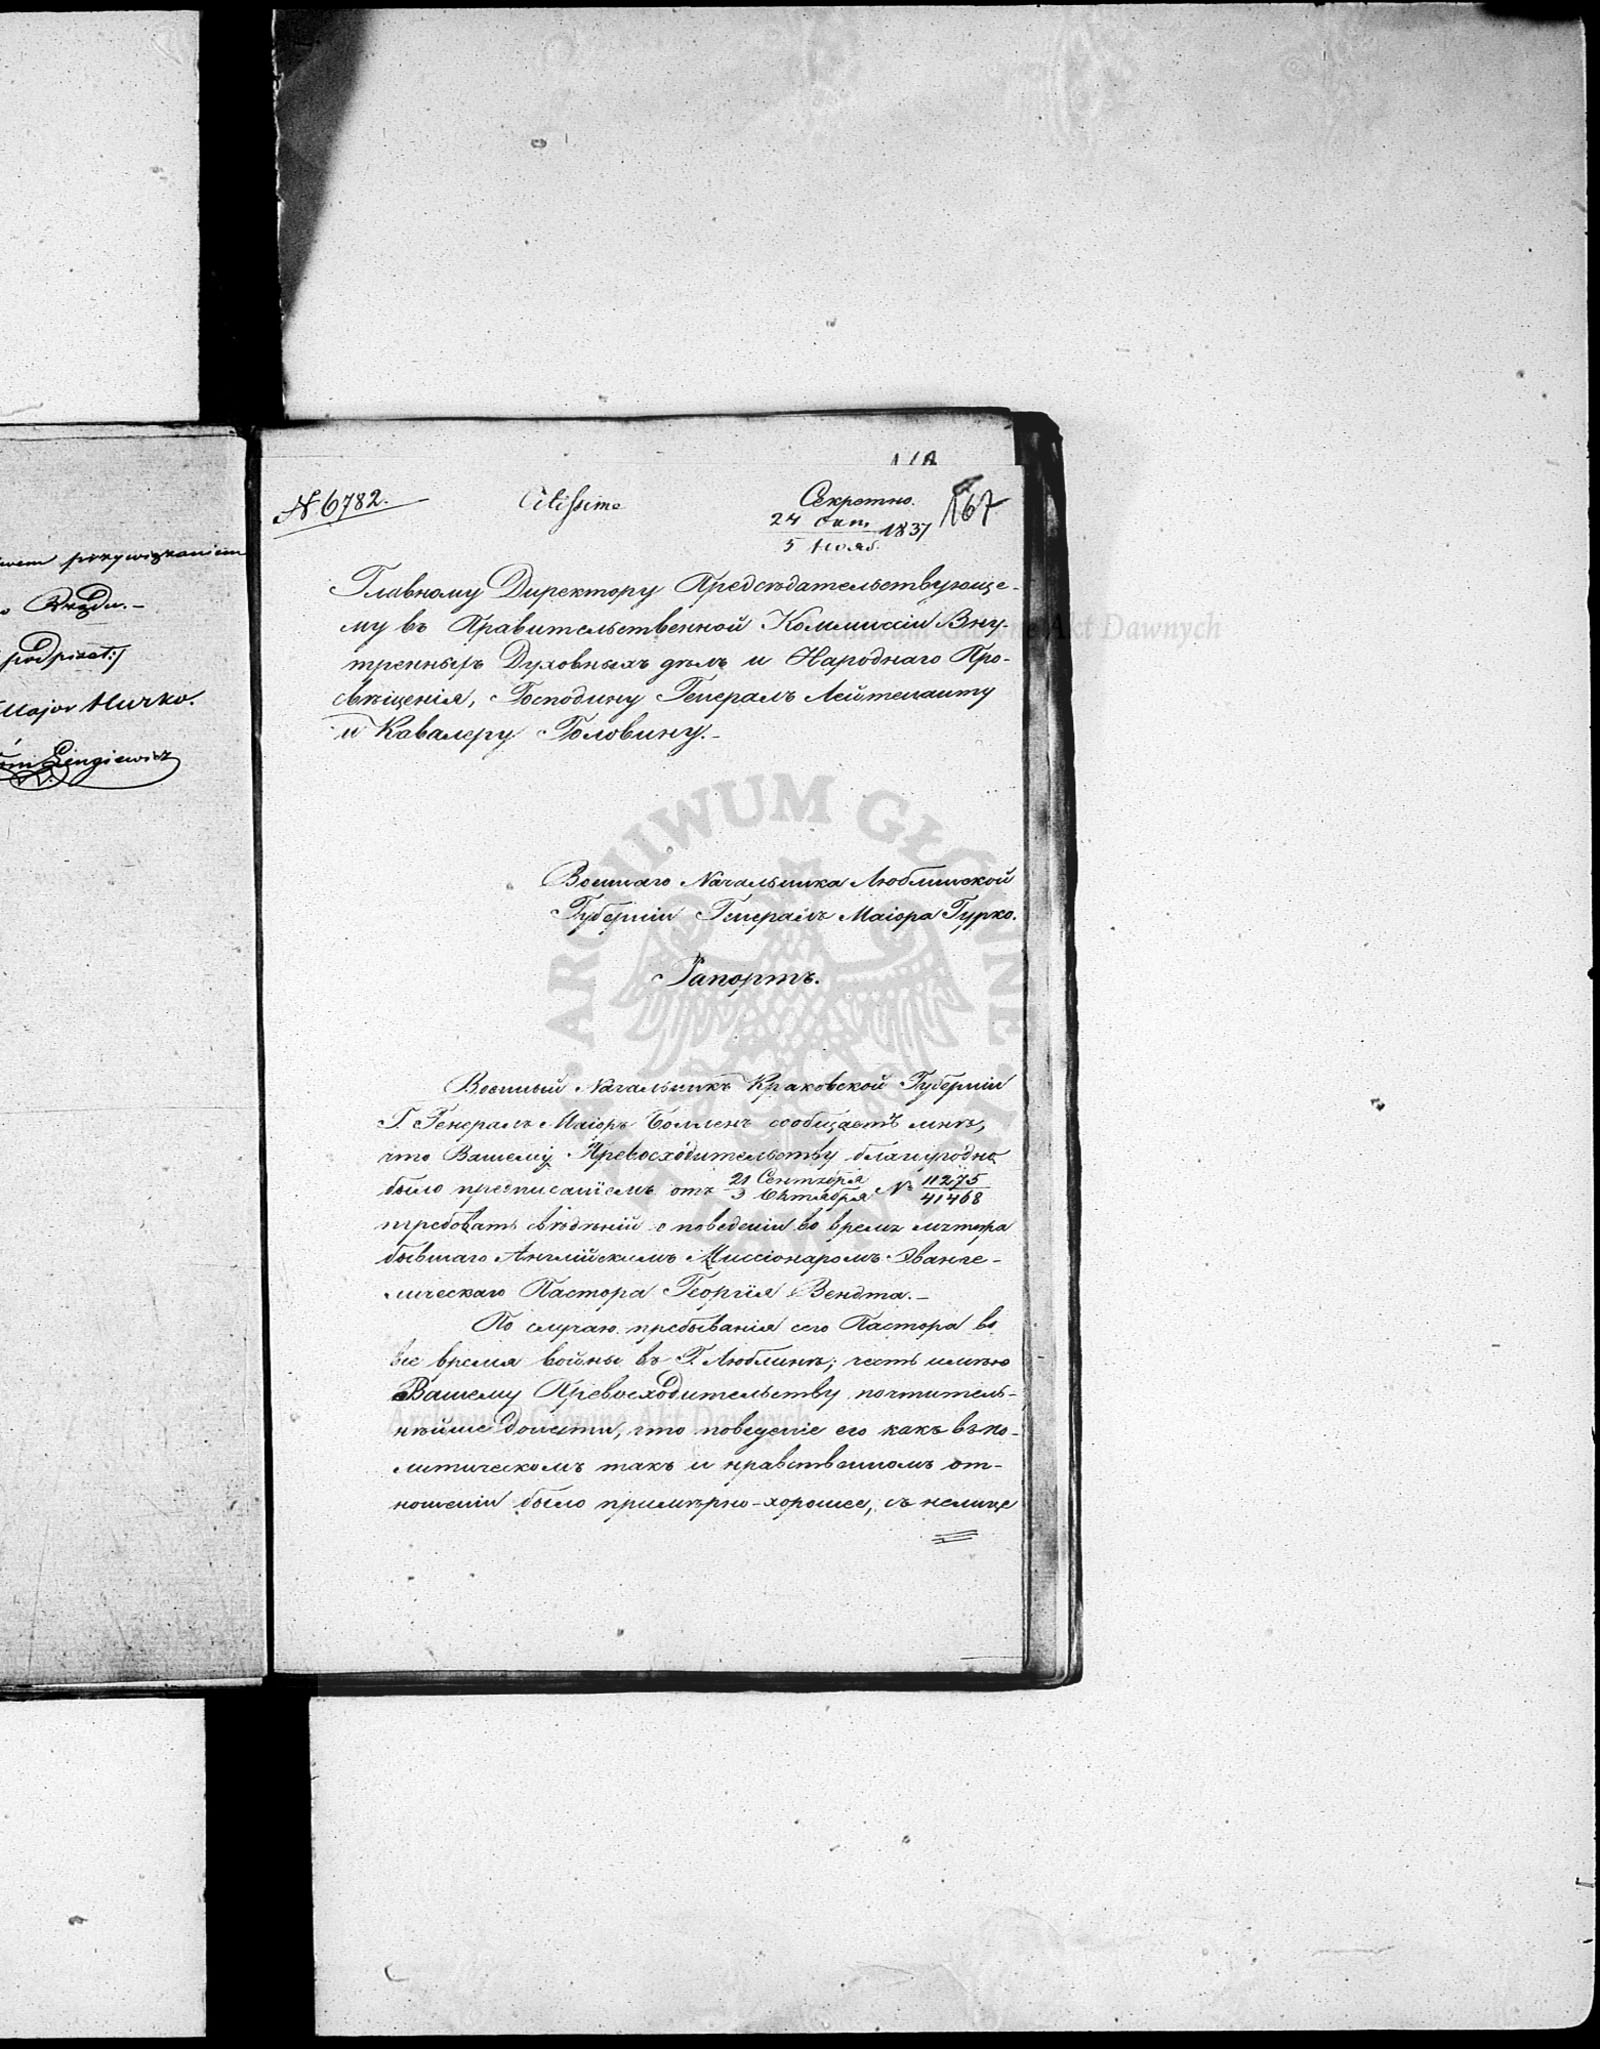 wem przywiązaniem
Rządu.—
podpisał:/
Major Hurko.
167
№ 6782.
Citissime
Секретно.
24 Окт. / 5 Нояб. 1837
Главному Директору Предсѣдательствующе-
му въ Правительственной Коммиссіи Вну-
треннихъ Духовныхъ дѣлъ и Народнаго Про-
свѣщенія, Господину Генералъ Лейтенанту
и Кавалеру Головину.—
Военнаго Начальника Люблинской
Губерніи Генералъ Маіора Гурко.
Рапортъ.
Военный Начальникъ Краковской Губерніи
Г. Генералъ Маіоръ сообщаетъ мнѣ,
что Вашему Превосходительству благоугодно
было предписаніемъ отъ 21 Сентября / 3 Октября № 11275 / 41468
требовать свѣдѣній о поведеніи во время мятежа
бывшаго Англійскимъ Миссіонаромъ Эванге-
лическаго Пастора Георгія Вендта.—
По случаю пребыванія сего Пастора во
все время войны въ Г. Люблинѣ; честь имѣю
Вашему Превосходительству почтитель-
нѣйше донести, что поведеніе его какъ въ по-
литическомъ такъ и нравственномъ от-
ношеніи было примѣрно-хорошее, съ нелице
Archiwum Główne Akt Dawnych
ARCHIWUM GŁÓWNE AKT DAWNYCH
Archiwum Główne Akt Dawnych